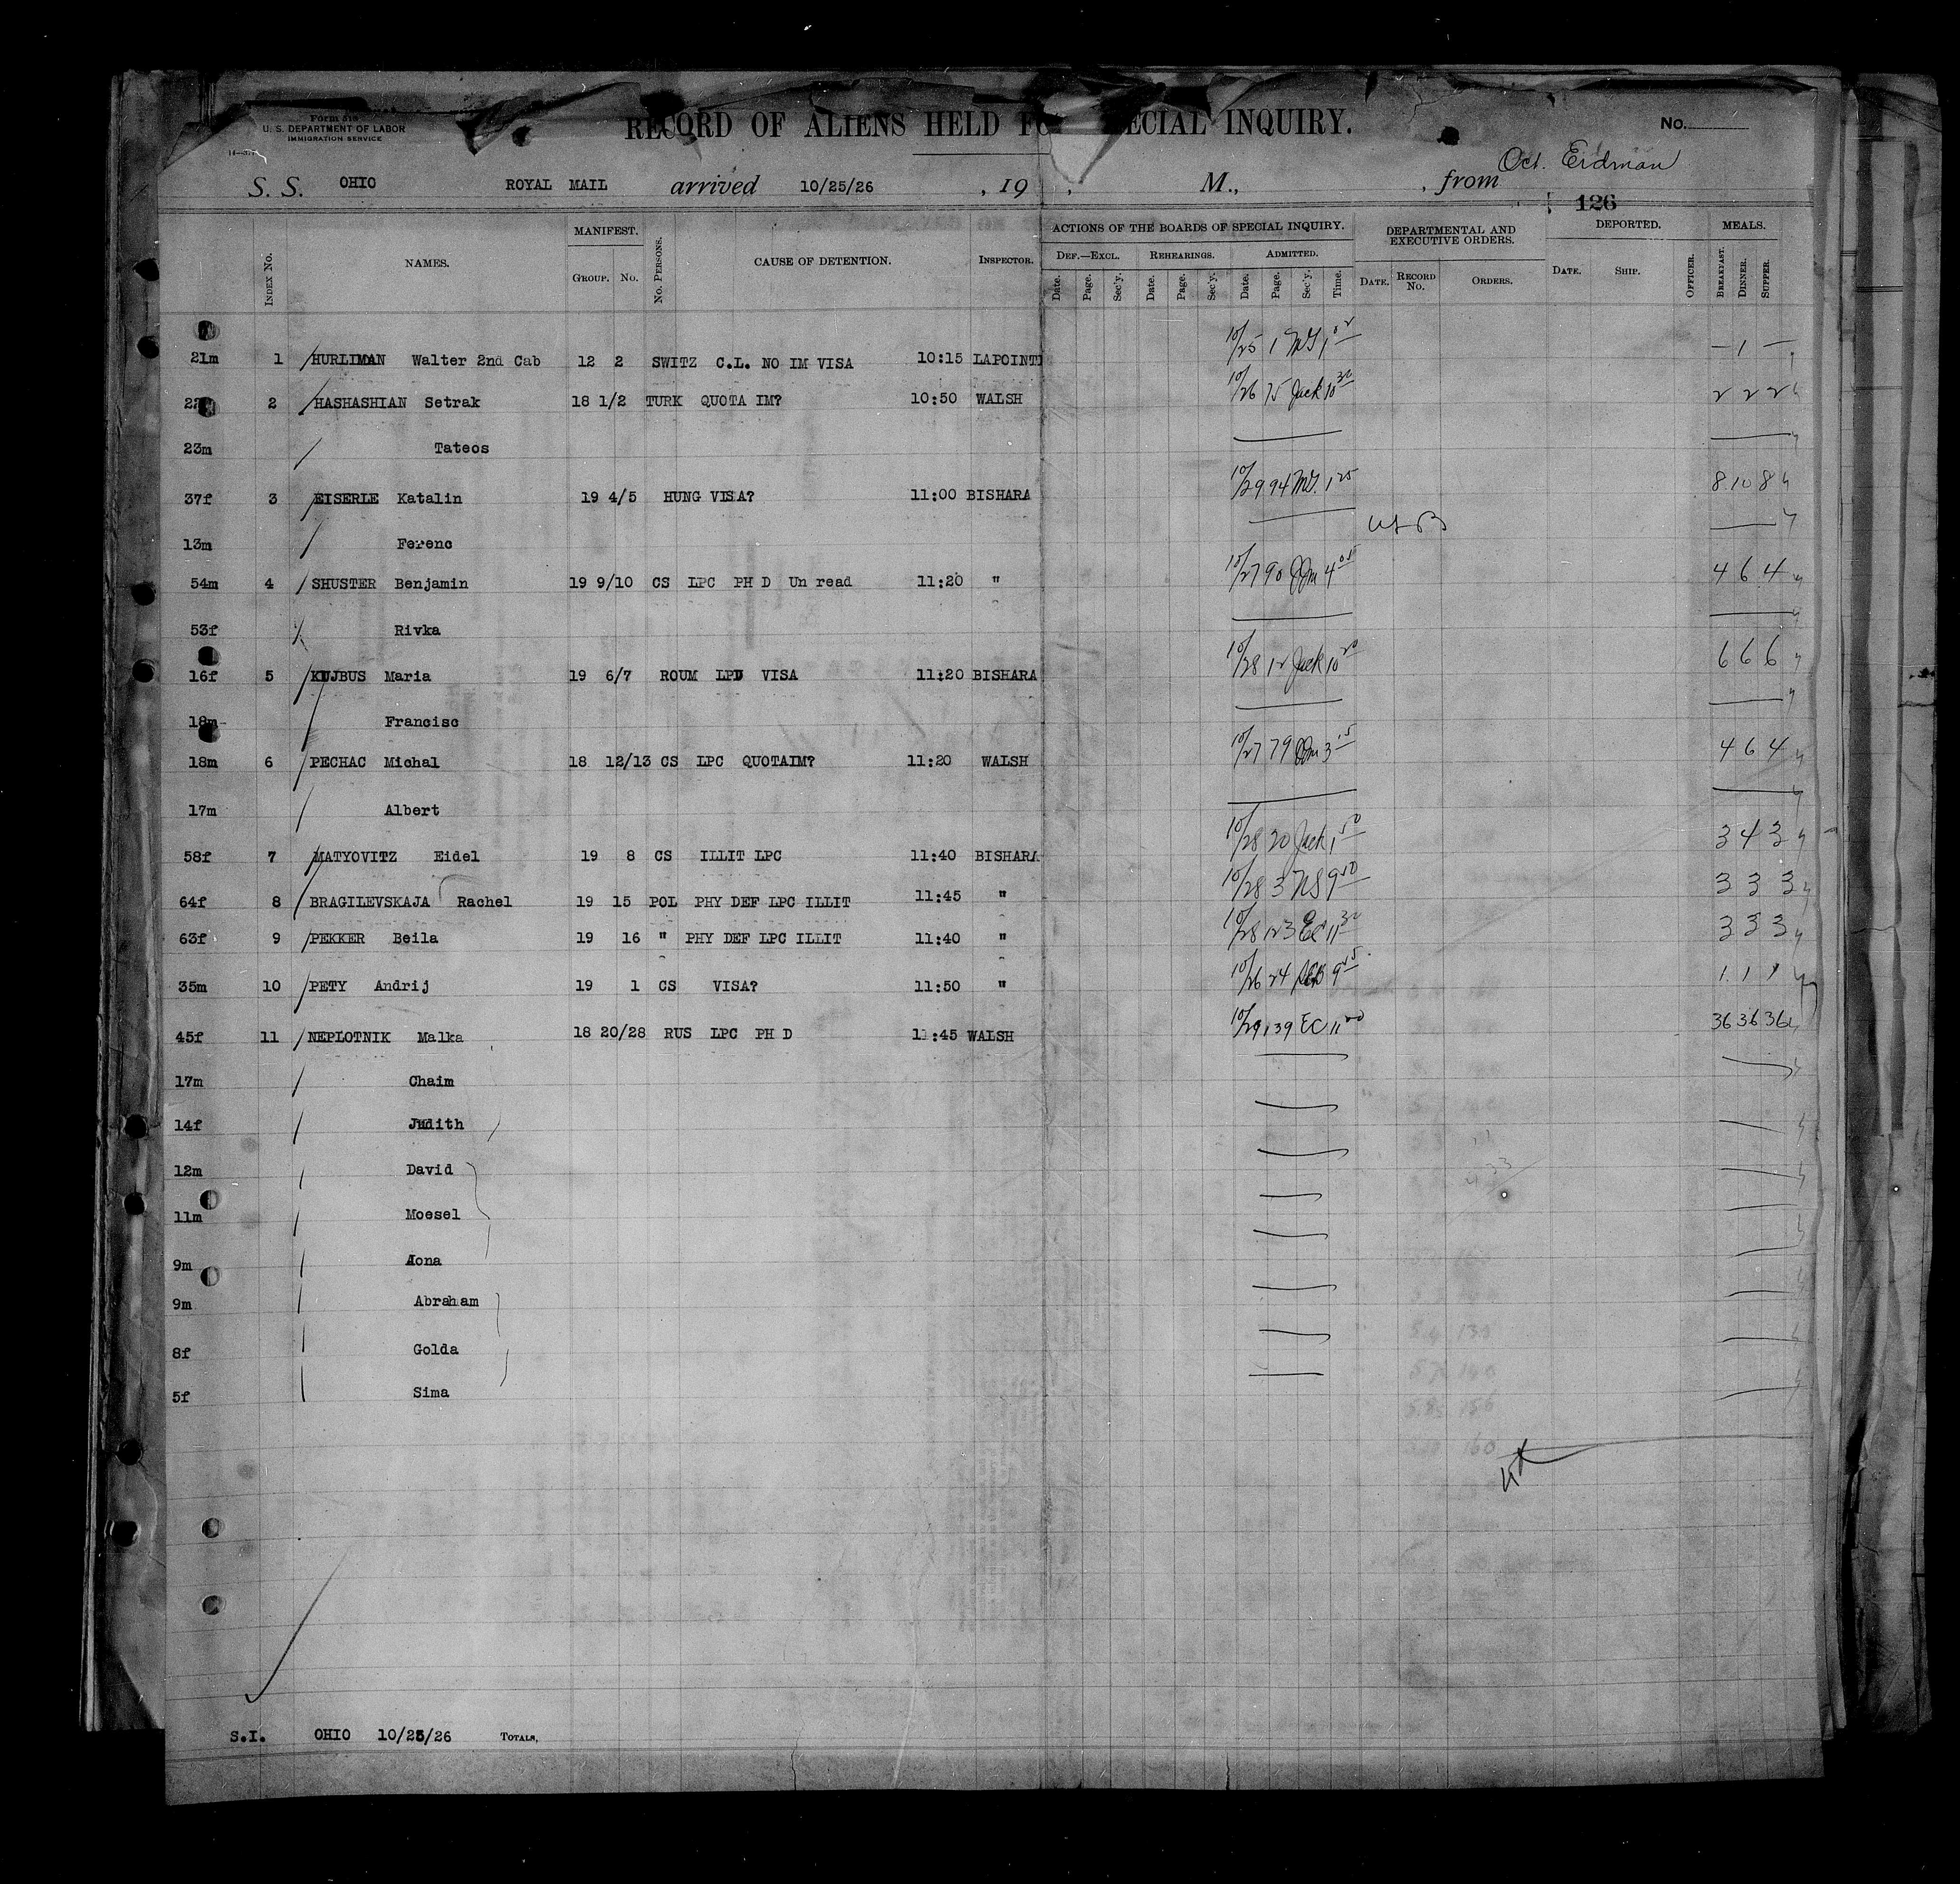 Form 518
U. S. DEPARTMENT OF LABOR
IMMIGRATION SERVICE
RECORD OF ALIENS HELD FO ECIAL INQUIRY.
No.
Oct. Erdman
S. S. OHIO ROYAL MAIL arrived 10/25/26 , 19 , M., , from
126
INDEX No. NAMES. MANIFEST. GROUP. No. No. PERSONS. CAUSE OF DETENTION. INSPECTOR. ACTIONS OF THE BOARDS OF SPECIAL INQUIRY. DEPARTMENTAL AND EXECUTIVE ORDERS. DEPORTED. MEALS.
DEF.—EXCL. REHEARINGS. ADMITTED.
Date. Page. Sec'y. Date. Page. Sec'y. Date. Page. Sec'y. Time. DATE. RECORD No. ORDERS. DATE. SHIP. OFFICER. BREAKFAST. DINNER. SUPPER.
21m 1 HURLIMAN Walter 2nd Cab 12 2 SWITZ C.L. NO IM VISA 10:15 LAPOINT 10/25 1 — 1 —
2 HASHASHIAN Setrak 18 1/2 TURK QUOTA IM? 10:50 WALSH 10/26 75 Jack 10 30 2 2 2
23m Tateos
37f 3 EISERLE Katalin 19 4/5 HUNG VISA? 11:00 BISHARA 10/29 94 1 25 8 10 8
13m Ferenc
54m 4 SHUSTER Benjamin 19 9/10 CS LPC PH D Un read 11:20 " 10/27 90 4 4 6 4
53f Rivka
16f 5 KUJBUS Maria 19 6/7 ROUM LPD VISA 11:20 BISHARA 10/28 12 Jack 10 20 6 6 6
18m Francisc
18m 6 PECHAC Michal 18 12/13 CS LPC QUOTAIM? 11:20 WALSH 10/27 79 3 15 4 6 4
17m Albert
58f 7 MATYOVITZ Eidel 19 8 CS ILLIT LPC 11:40 BISHARA 10/28 20 Jack 1 50 3 4 3
64f 8 BRAGILEVSKAJA Rachel 19 15 POL PHY DEF LPC ILLIT 11:45 " 10/28 3 9 50 3 3 3
63f 9 PEKKER Beila 19 16 " PHY DEF LPC ILLIT 11:40 " 10/28 123 EC 11 30 3 3 3
35m 10 PETY Andrij 19 1 CS VISA? 11:50 " 10/26 24 9 15 1 1 1
45f 11 NEPLOTNIK Malka 18 20/28 RUS LPC PH D 11:45 WALSH 10/29 139 EC 11 00 36 36 36
17m Chaim
14f Judith
12m David
11m Moesel
9m Aona
9m Abraham
8f Golda
5f Sima
S.I. OHIO 10/25/26 TOTALS,